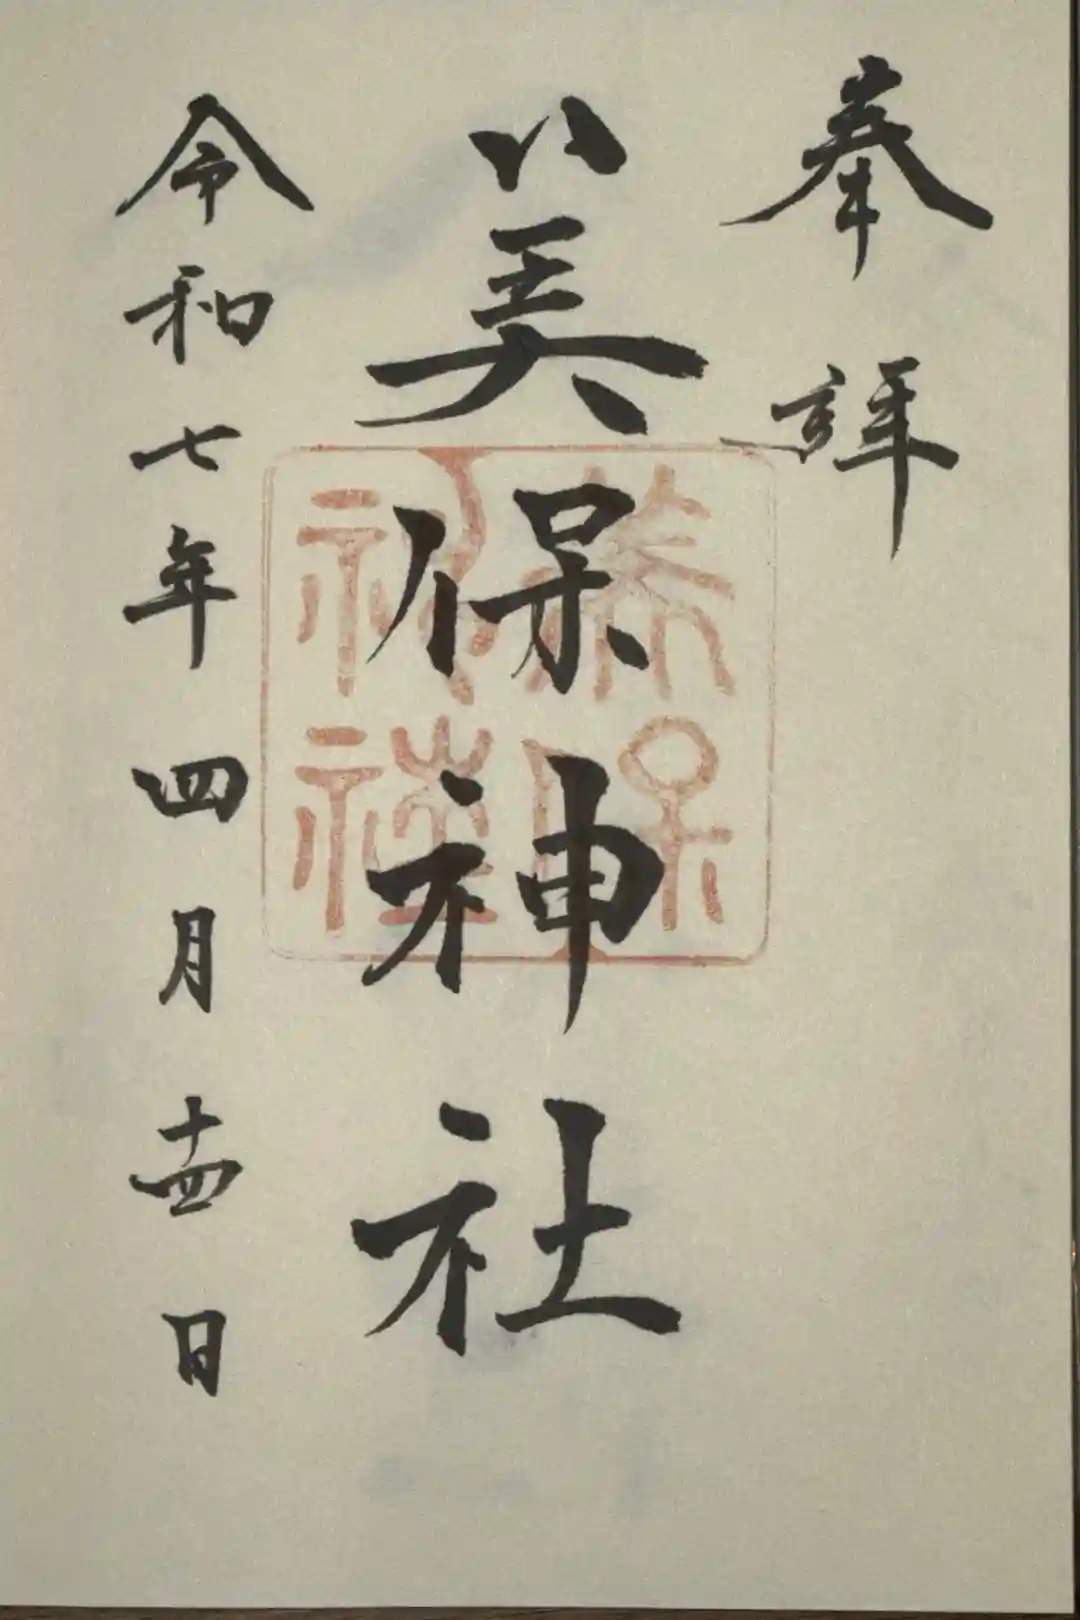 奉拝
美保神社
美保神社
令和七年四月十四日